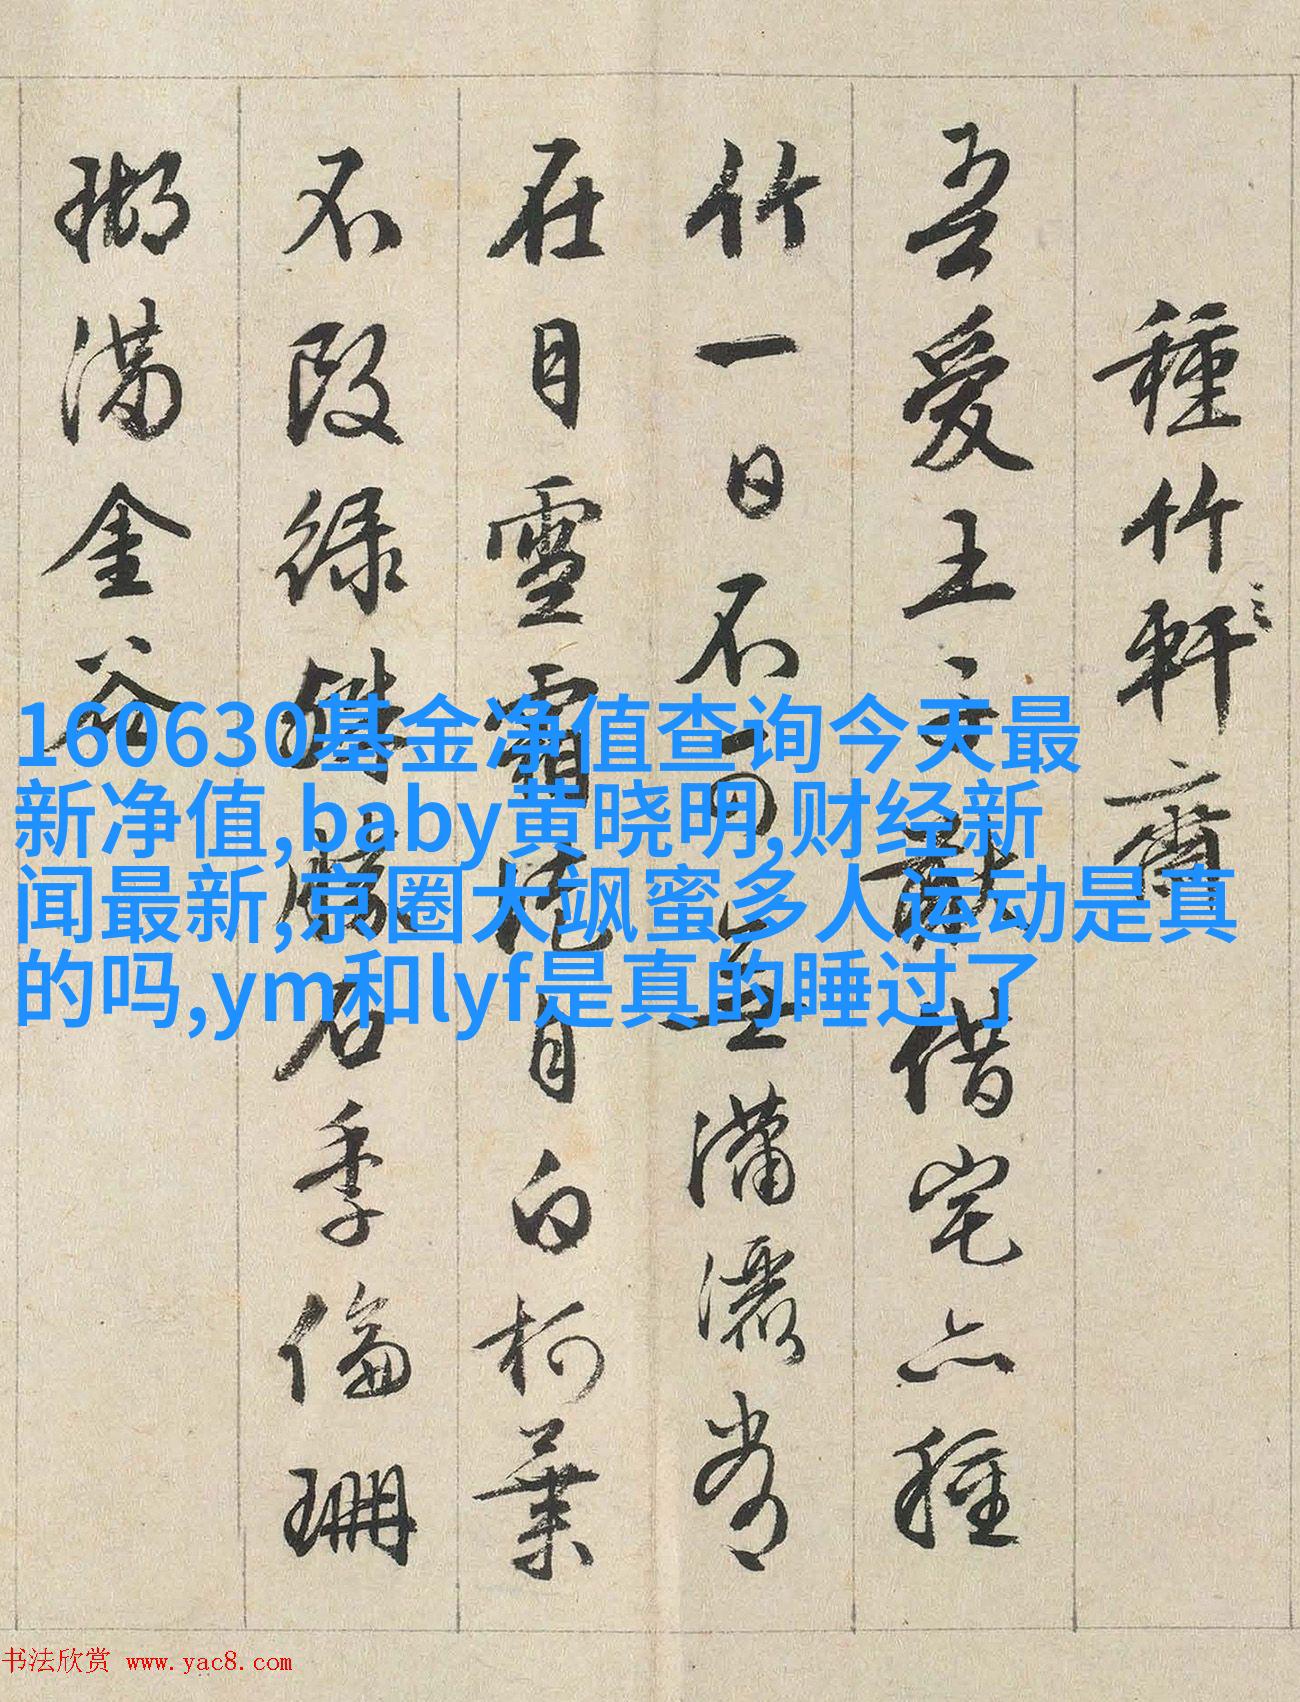 種竹軒齋
吾愛王子猷借宅亦種
竹一日不可無瀟灑常
在目雪霜徒自白柯葉
不改綠殊勝石季倫珊
瑚滿金谷
160630基金净值查询今天最
新净值,baby黄晓明,财经新
闻最新,京圈大飒蜜多人运动是真
的吗,ym和lyf是真的睡过了
书法欣赏 www.yac8.com